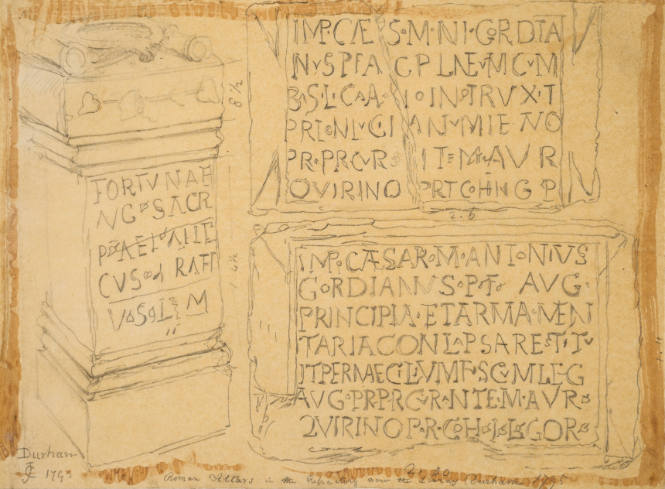 FORTVNAE
NG SACR
P AEL
CVS RAET
V S L M
8 1/2
IMP CÆS M NI GORDIA
NVS P F A G PLNEVM CVM
B S L C A NO IN TRVXIT
PR NL GI ANVM LE NO
PR PRCVRS ITEM AVR
QVIRINO PR COH G P
2.6
IMP CÆSAR M ANTONIVS
GORDIANVS P F AVG
PRINCIPIA ET ARMAMEN
TARIA CONLAPSA RESTIT
IT PER MAECIL VM FVSCVM LEG
AVG PR PR CVRANTE M AVR
QVIRINO PR COH I L GOR
Durham
1795
Roman Altars in the Refectory now the Library Durham 1795